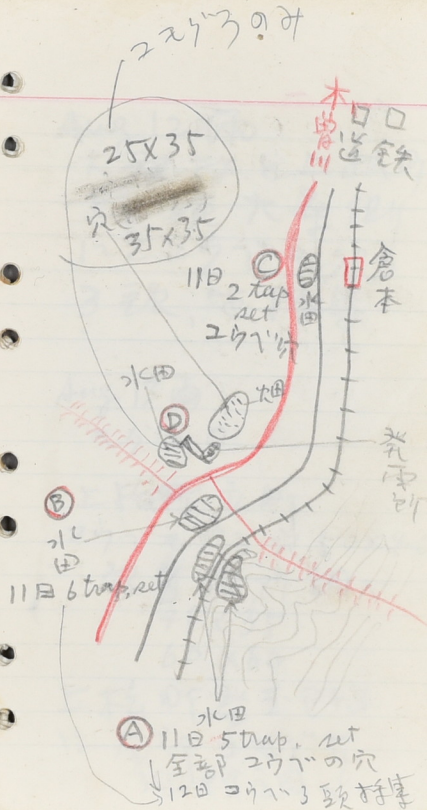 コモグラのみ
25×35
穴
35×35
木曽川
□道
□鉄
倉本
Ⓒ
11日
2 trap
set
コウベ分
水田
畑
水田
Ⓓ
発電所
Ⓑ
水田
11日 6 trap. set
水田
Ⓐ 11日 5 trap. set
全部 コウベの穴
12日 コウベ3頭捕獲